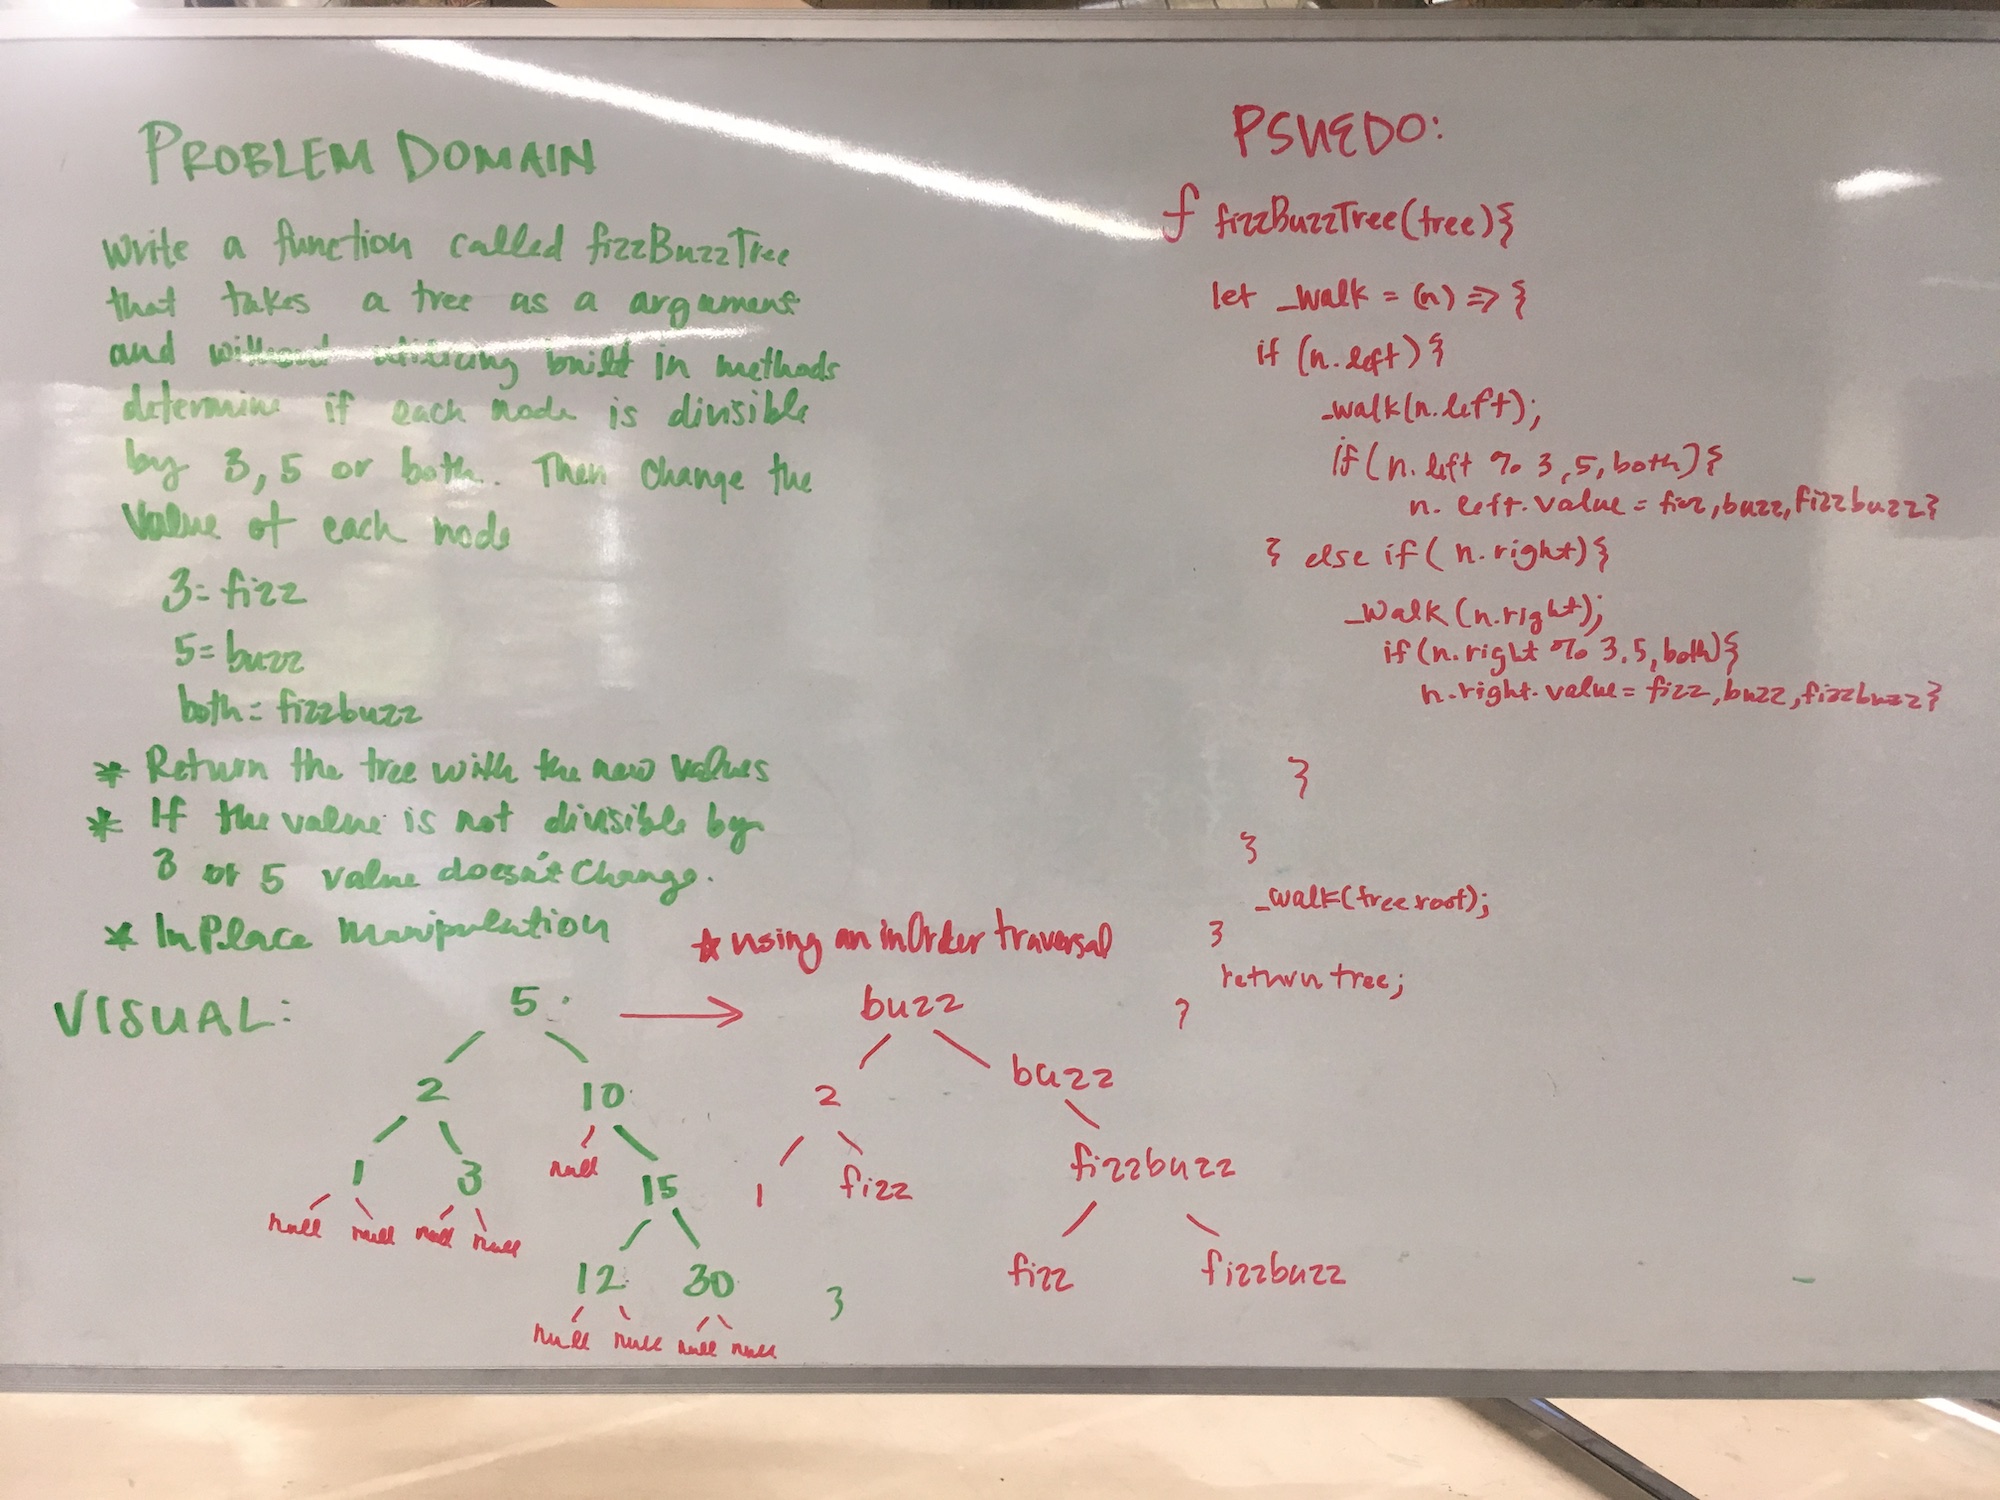 PROBLEM DOMAIN
write a function called fizzBuzzTree
that takes a tree as a argument
and without utilizing built in methods
determine if each node is divisible
by 3, 5 or both. Then change the
value of each node
3= fizz
5= buzz
both= fizzbuzz
* Return the tree with the new values
* If the value is not divisible by
3 or 5 value doesn't change.
* InPlace manipulation
★ using an inOrder traversal
VISUAL:
5
2 10
1 3 null 15
null null null null
12 30
null null null null
3
buzz
2 buzz
1 fizz fizzbuzz
fizz fizzbuzz
PSUEDO:
f fizzBuzzTree(tree){
let _walk = (n) => {
if (n.left) {
_walk(n.left);
if (n.left % 3, 5, both) {
n.left.value = fizz, buzz, fizzbuzz}
} else if (n.right) {
_walk (n.right);
if (n.right % 3.5, both) {
n.right.value = fizz, buzz, fizzbuzz}
}
}
_walk(tree.root);
}
return tree;
}